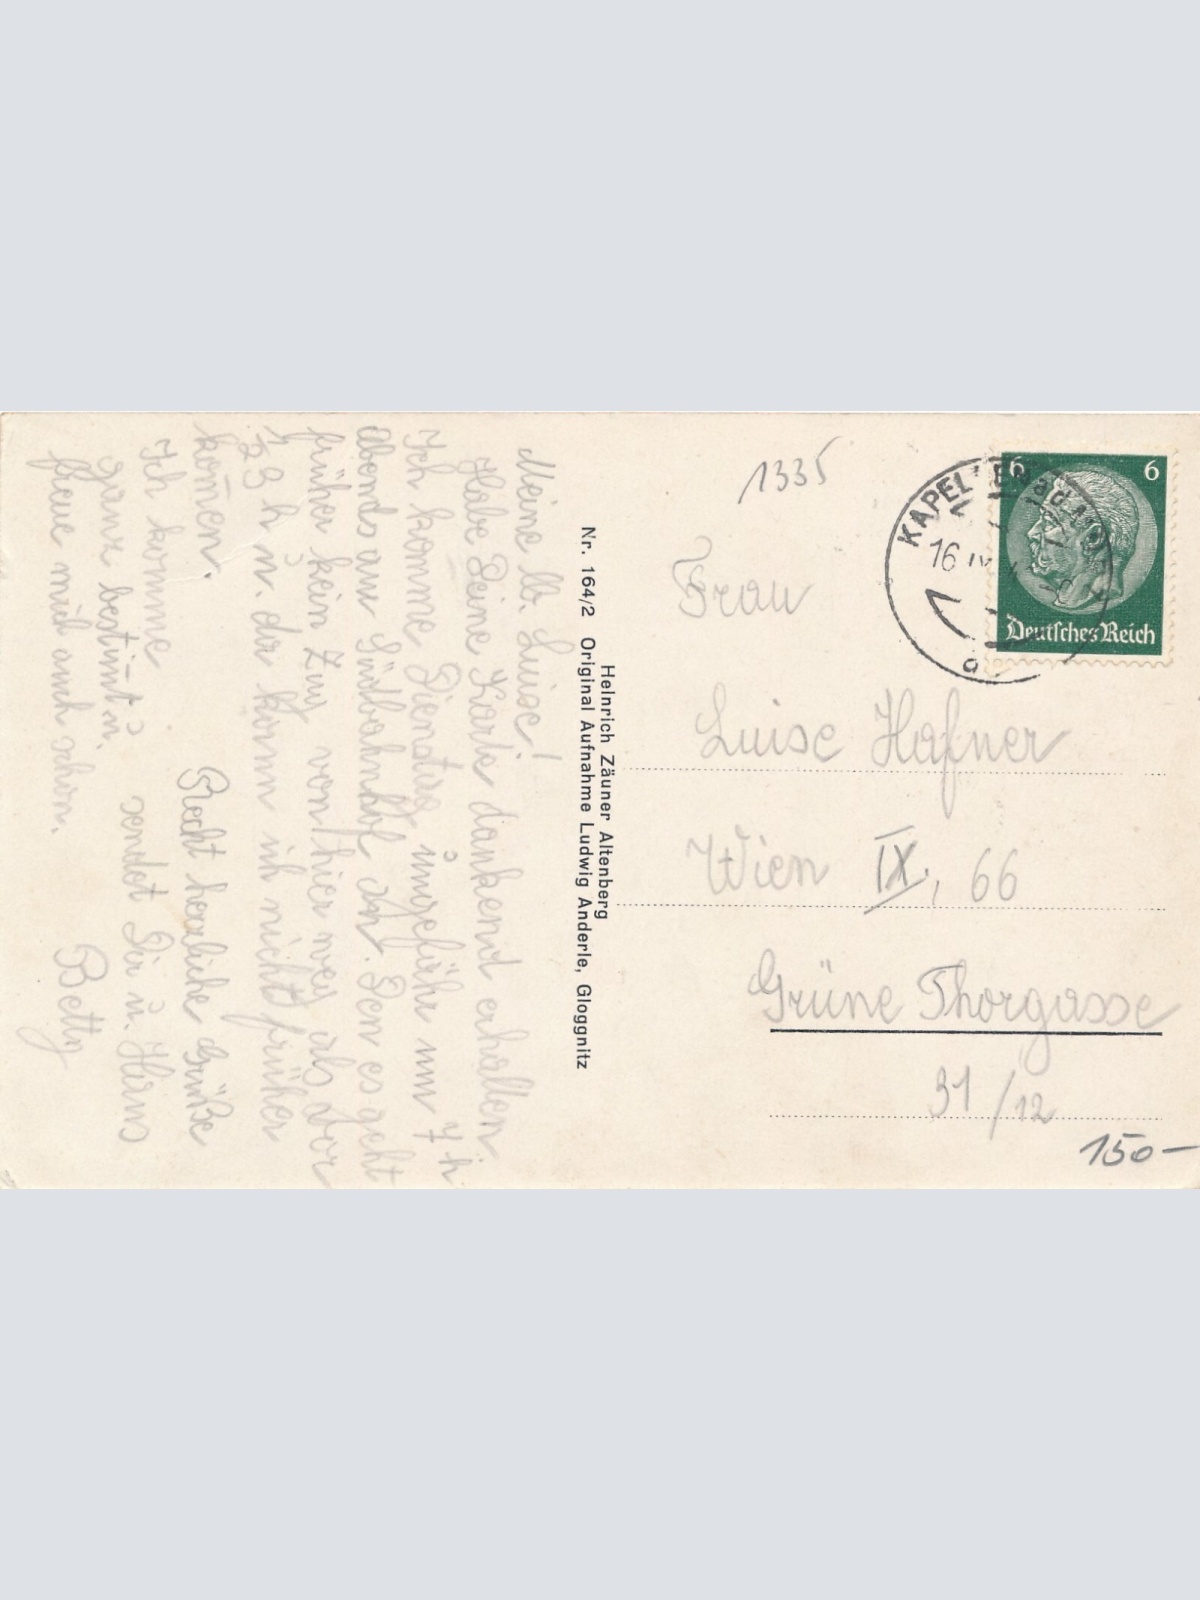 Meine lb. Luise!
Habe Deine Karte dankend erhalten
Ich komme Dienstag ungefähr um 7 h
abends am Südbahnhof an. Den es geht
früher kein Zug von hier weg als Vor
½ 3 h n. da kann ich nicht früher
kom̄en.
Recht herzliche Grüße
Ich komme sendet Dir u. Hans
ganz bestim̄t u.
freue mich auch schon.
Betty
Heinrich Zäuner Altenberg
Nr. 164/2 Original Aufnahme Ludwig Anderle, Gloggnitz
1335
KAPELLEN
16 IV
6 6
Deutsches Reich
Frau
Luise Hafner
Wien IX, 66
Grüne Thorgasse
31/12
150-